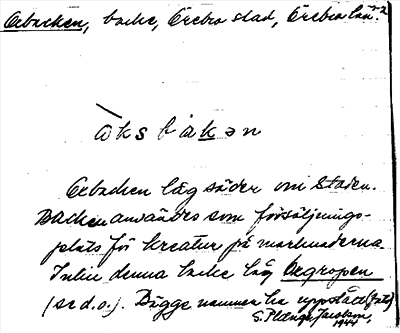 Oxbacken, backe, Örebro stad, Örebro län.
Oxbacken låg söder om Staden.
Backen användes som försäljnings-
plats för kreatur på marknaderna.
Intill denna backe låg Oxgropen
(se d. o.). Bägge namnen ha uppstått
1944